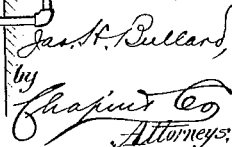 Jas. H. Bullard,
by
Chapin & Co
Attorneys.